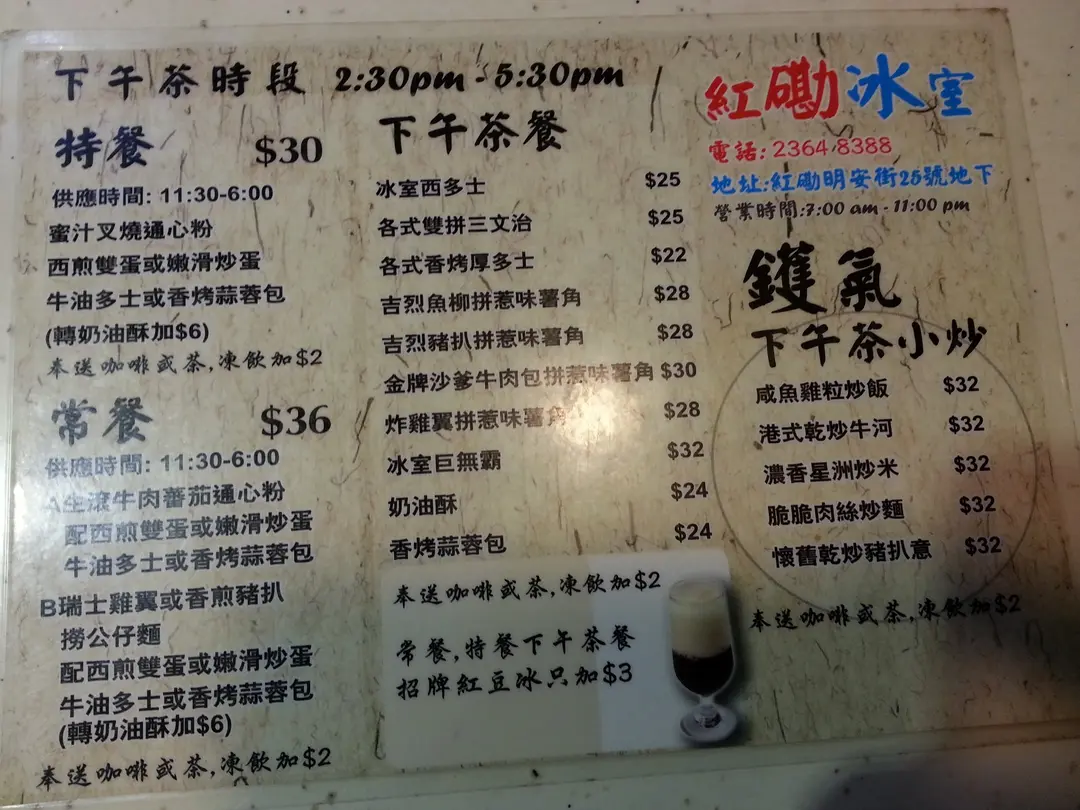 下午茶時段 2:30pm - 5:30pm
特餐 $30
供應時間: 11:30-6:00
蜜汁叉燒通心粉
西煎雙蛋或嫩滑炒蛋
牛油多士或香烤蒜蓉包
(轉奶油酥加$6)
奉送咖啡或茶,凍飲加$2
常餐 $36
供應時間: 11:30-6:00
A生滾牛肉蕃茄通心粉
配西煎雙蛋或嫩滑炒蛋
牛油多士或香烤蒜蓉包
B瑞士雞翼或香煎豬扒
撈公仔麵
配西煎雙蛋或嫩滑炒蛋
牛油多士或香烤蒜蓉包
(轉奶油酥加$6)
奉送咖啡或茶,凍飲加$2
下午茶餐
冰室西多士 $25
各式雙拼三文治 $25
各式香烤厚多士 $22
吉烈魚柳拼惹味薯角 $28
吉烈豬扒拼惹味薯角 $28
金牌沙爹牛肉包拼惹味薯角 $30
炸雞翼拼惹味薯角 $28
冰室巨無霸 $32
奶油酥 $24
香烤蒜蓉包 $24
奉送咖啡或茶,凍飲加$2
常餐,特餐下午茶餐
招牌紅豆冰只加$3
紅磡冰室
電話: 2364 8388
地址:紅磡明安街25號地下
營業時間:7:00 am - 11:00 pm
鑊氣
下午茶小炒
咸魚雞粒炒飯 $32
港式乾炒牛河 $32
濃香星洲炒米 $32
脆脆肉絲炒麵 $32
懷舊乾炒豬扒意 $32
奉送咖啡或茶,凍飲加$2